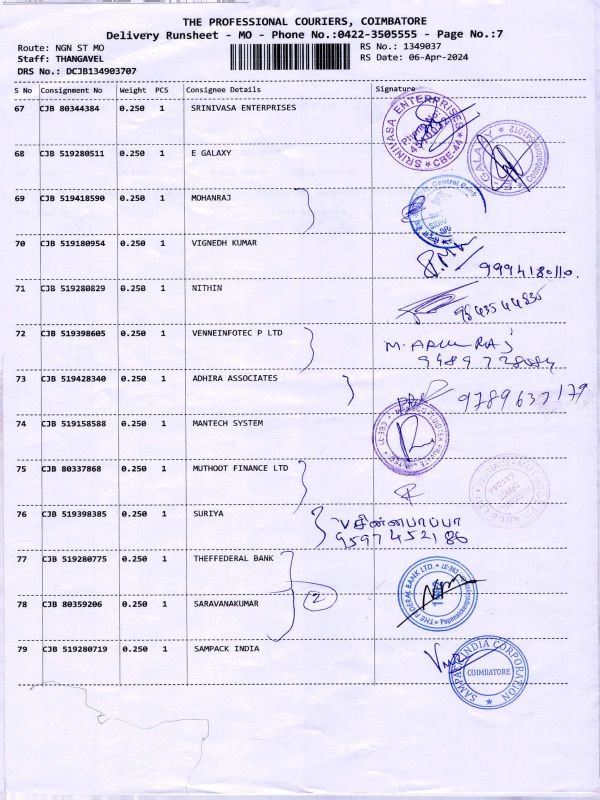 THE PROFESSIONAL COURIERS, COIMBATORE
Delivery Runsheet - MO - Phone No.:0422-3505555 - Page No.:7
Route: NGN ST MO
Staff: THANGAVEL
DRS No.: DCJB134903707
RS No.: 1349037
RS Date: 06-Apr-2024
S No Consignment No Weight PCS Consignee Details Signature
67 CJB 80344384 0.250 1 SRINIVASA ENTERPRISES
SRINIVASA ENTERPRISES CBE-44
68 CJB 519280511 0.250 1 E GALAXY
GALAXY
69 CJB 519418590 0.250 1 MOHANRAJ
Central Bank
70 CJB 519180954 0.250 1 VIGNEDH KUMAR
9994180110.
71 CJB 519280829 0.250 1 NITHIN
72 CJB 519398605 0.250 1 VENNEINFOTEC P LTD
73 CJB 519428340 0.250 1 ADHIRA ASSOCIATES
9789637179
74 CJB 519158588 0.250 1 MANTECH SYSTEM
75 CJB 80337868 0.250 1 MUTHOOT FINANCE LTD
76 CJB 519398385 0.250 1 SURIYA
சின்னபாப்பா
9597452186
77 CJB 519280775 0.250 1 THEFFEDERAL BANK
THE FEDERAL BANK LTD.
78 CJB 80359206 0.250 1 SARAVANAKUMAR
2
79 CJB 519280719 0.250 1 SAMPACK INDIA
SAMPACK INDIA CORPORATION
COIMBATORE